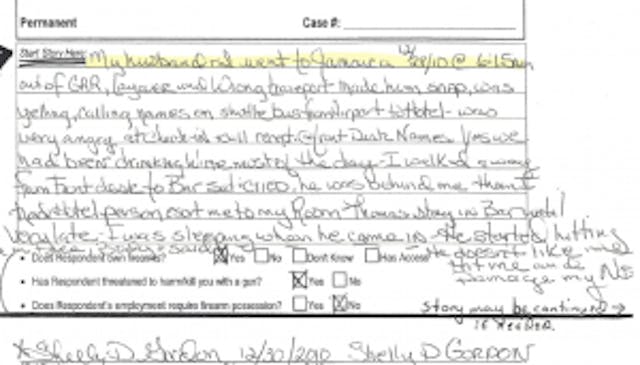 Permanent Case #:
Start Story Here: My husband and I went to Jamaica 12/28/10 @ 6:15am
out of GAR, Layover and Wrong transport made him snap, was
yelling, calling names on shuttle bus from airport to Hotel - was
very angry, at check-in Names
had been drinking Wine most of the day. I walked away
from Front desk to Bar he was behind me then I
had Hotel person escort me to my Room Thomas stay in Bar until
very late. I was sleeping when he came in. He started hitting
Does Respondent own firearms? Yes No Don't Know Has Access
he doesn't like me
hit me and
Damage my
Has Respondent threatened to harm/kill you with a gun? Yes No
Does Respondent's employment require firearm possession? Yes No
Story may be continued →
if needed.
Shelly D. Gordon 12/30/2010 Shelly D GORDON